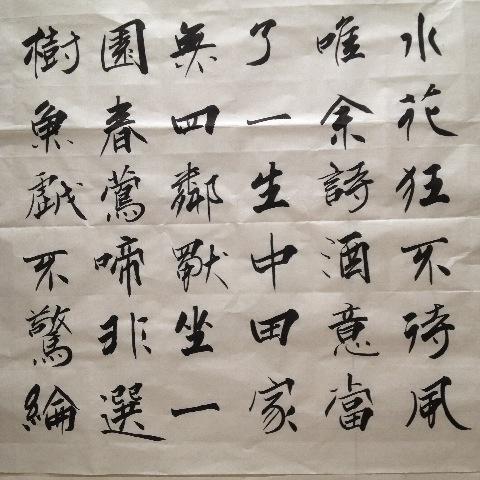 水花狂不待風
唯余詩酒意當
了一生中田家
無四鄰獨坐一
園春鶯啼非選
樹魚戲不驚綸